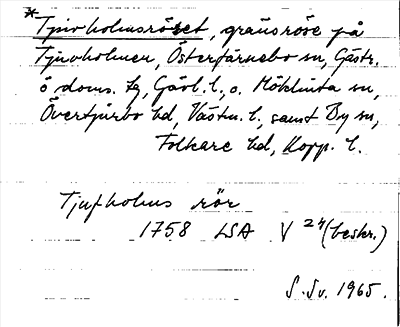 *Tjuvholmsröset, gränsröse på
Tjuvholmen, Österfärnebo sn, Gästr.
ö doms. tg, Gävl. l., o. Möklinta sn,
Övertjurbo hd, Västm. l., samt By sn,
Folkare hd, Kopp. l.
Tjufholms rör
1758 LSA V 24 (beskr.)
S. Sv. 1965.